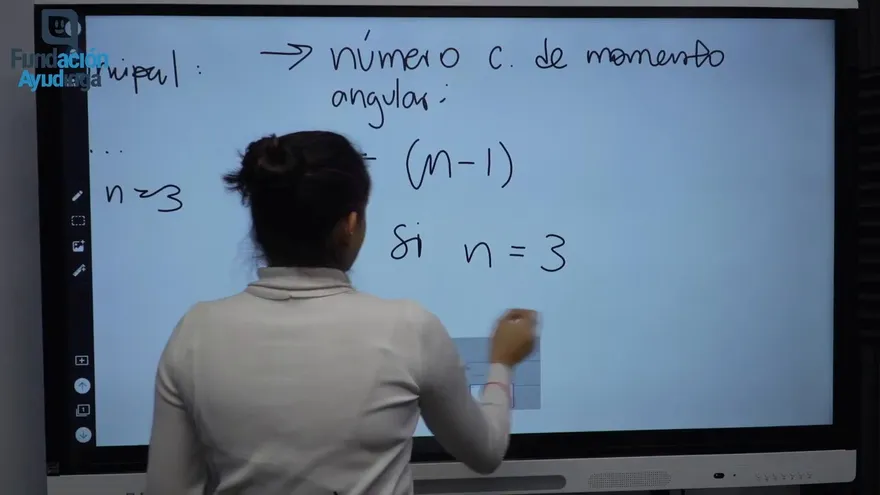 Fundación
Ayudinga
→ número c. de momento
angular:
...
(n-1)
n=3
Si n = 3